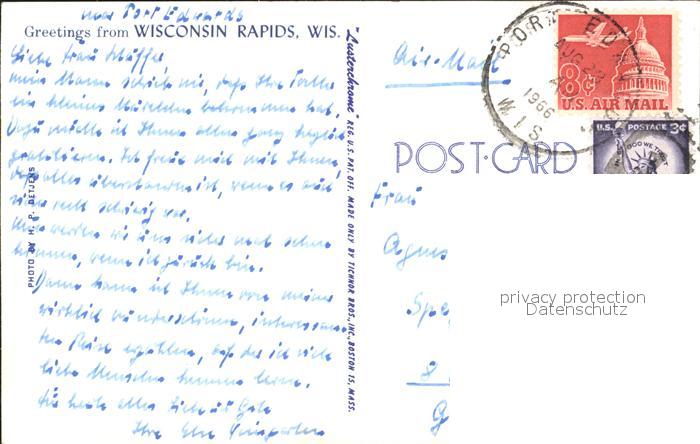 near Port Edwards
Greetings from WISCONSIN RAPIDS, WIS.
Liebe Frau
mein Mann schrieb mir, dass Ihre Tochter
ein kleines Mädelchen bekommen hat.
Dazu möchte ich Ihnen allen ganz herzlich
gratulieren. Ich freue mich mit Ihnen,
dass alles überstanden ist, wenn es auch
recht schwierig war.
Nun werden wir uns bald mal sehen
können, wenn ich zurück bin.
Dann kann ich Ihnen von meiner
wirklich wunderschönen, interessan-
ten Reise erzählen, auf der ich viele
liebe Menschen kennen lernte.
Für heute alles Liebe und Gute
Ihre Else
PHOTO BY H. P. DETJENS
"Lusterchrome" REG. U.S. PAT. OFF. MADE ONLY BY TICHNOR BROS., INC., BOSTON 15, MASS.
Air-Mail
POST-CARD
Frau
Agnes
Spe
8
G
PORT EDW
AUG
1966
WIS
8¢
U.S. AIR MAIL
U.S. POSTAGE 3¢
IN GOD WE TRUST
privacy protection
Datenschutz